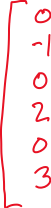 0
-1
0
2
0
3